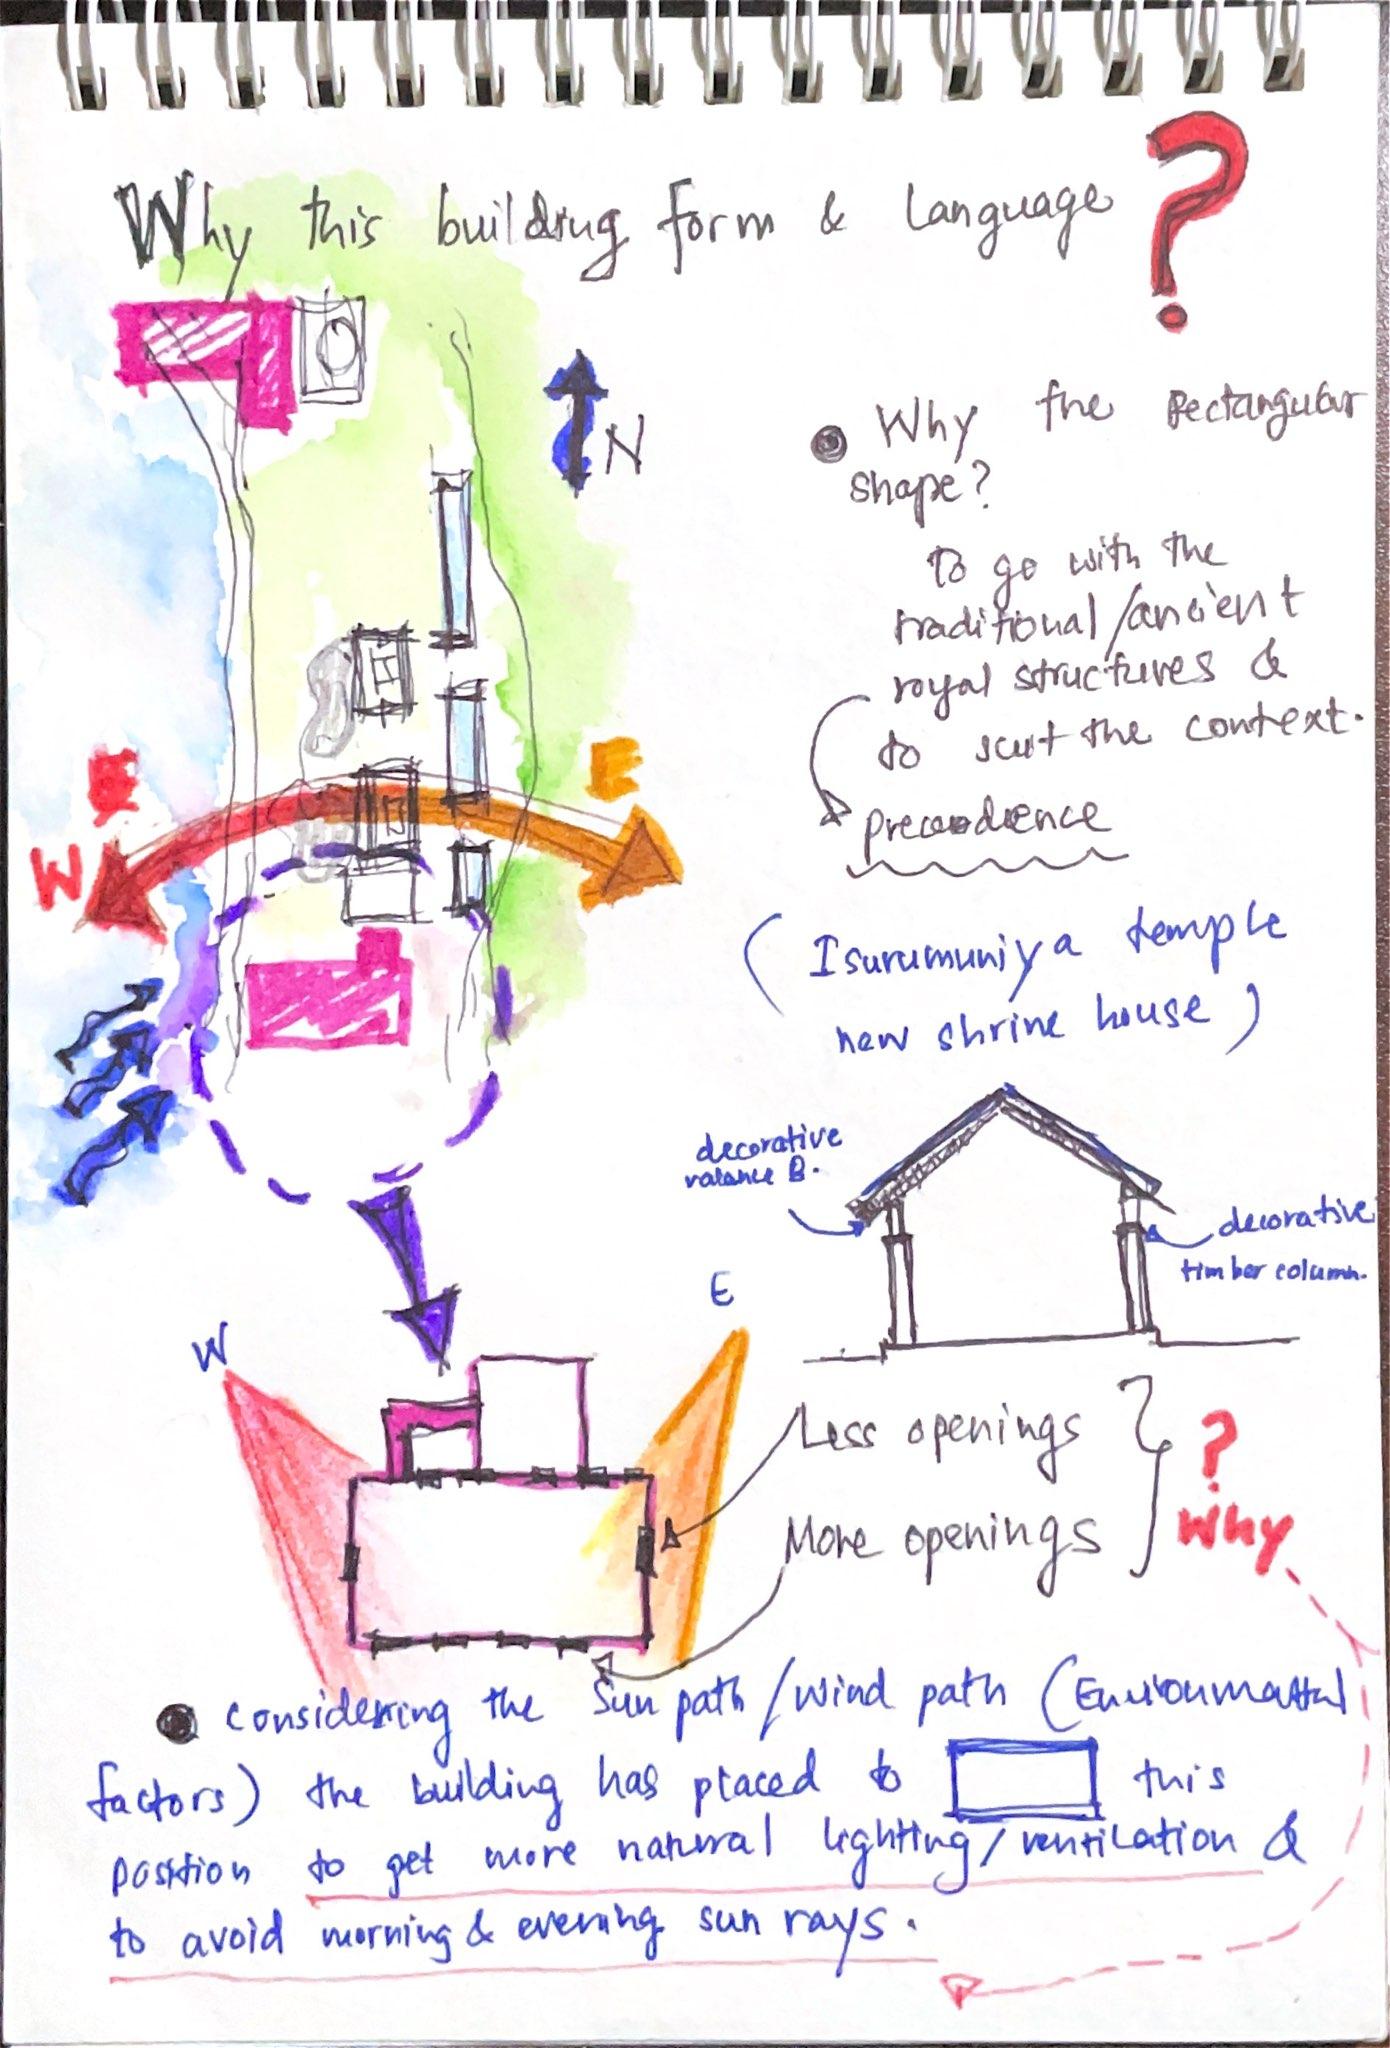 Why this building form & Language ?
N
Why the Rectangular
shape?
To go with the
traditional/ancient
royal structures &
to suit the context.
precedence
(Isurumuniya temple
new shrine house)
E
E
W
decorative
valance B.
decorative
timber column.
W
E
Less openings
More openings
?
Why
considering the Sun path/wind path (Environmental
factors) the building has placed to this
position to get more natural lighting/ventilation &
to avoid morning & evening sun rays.